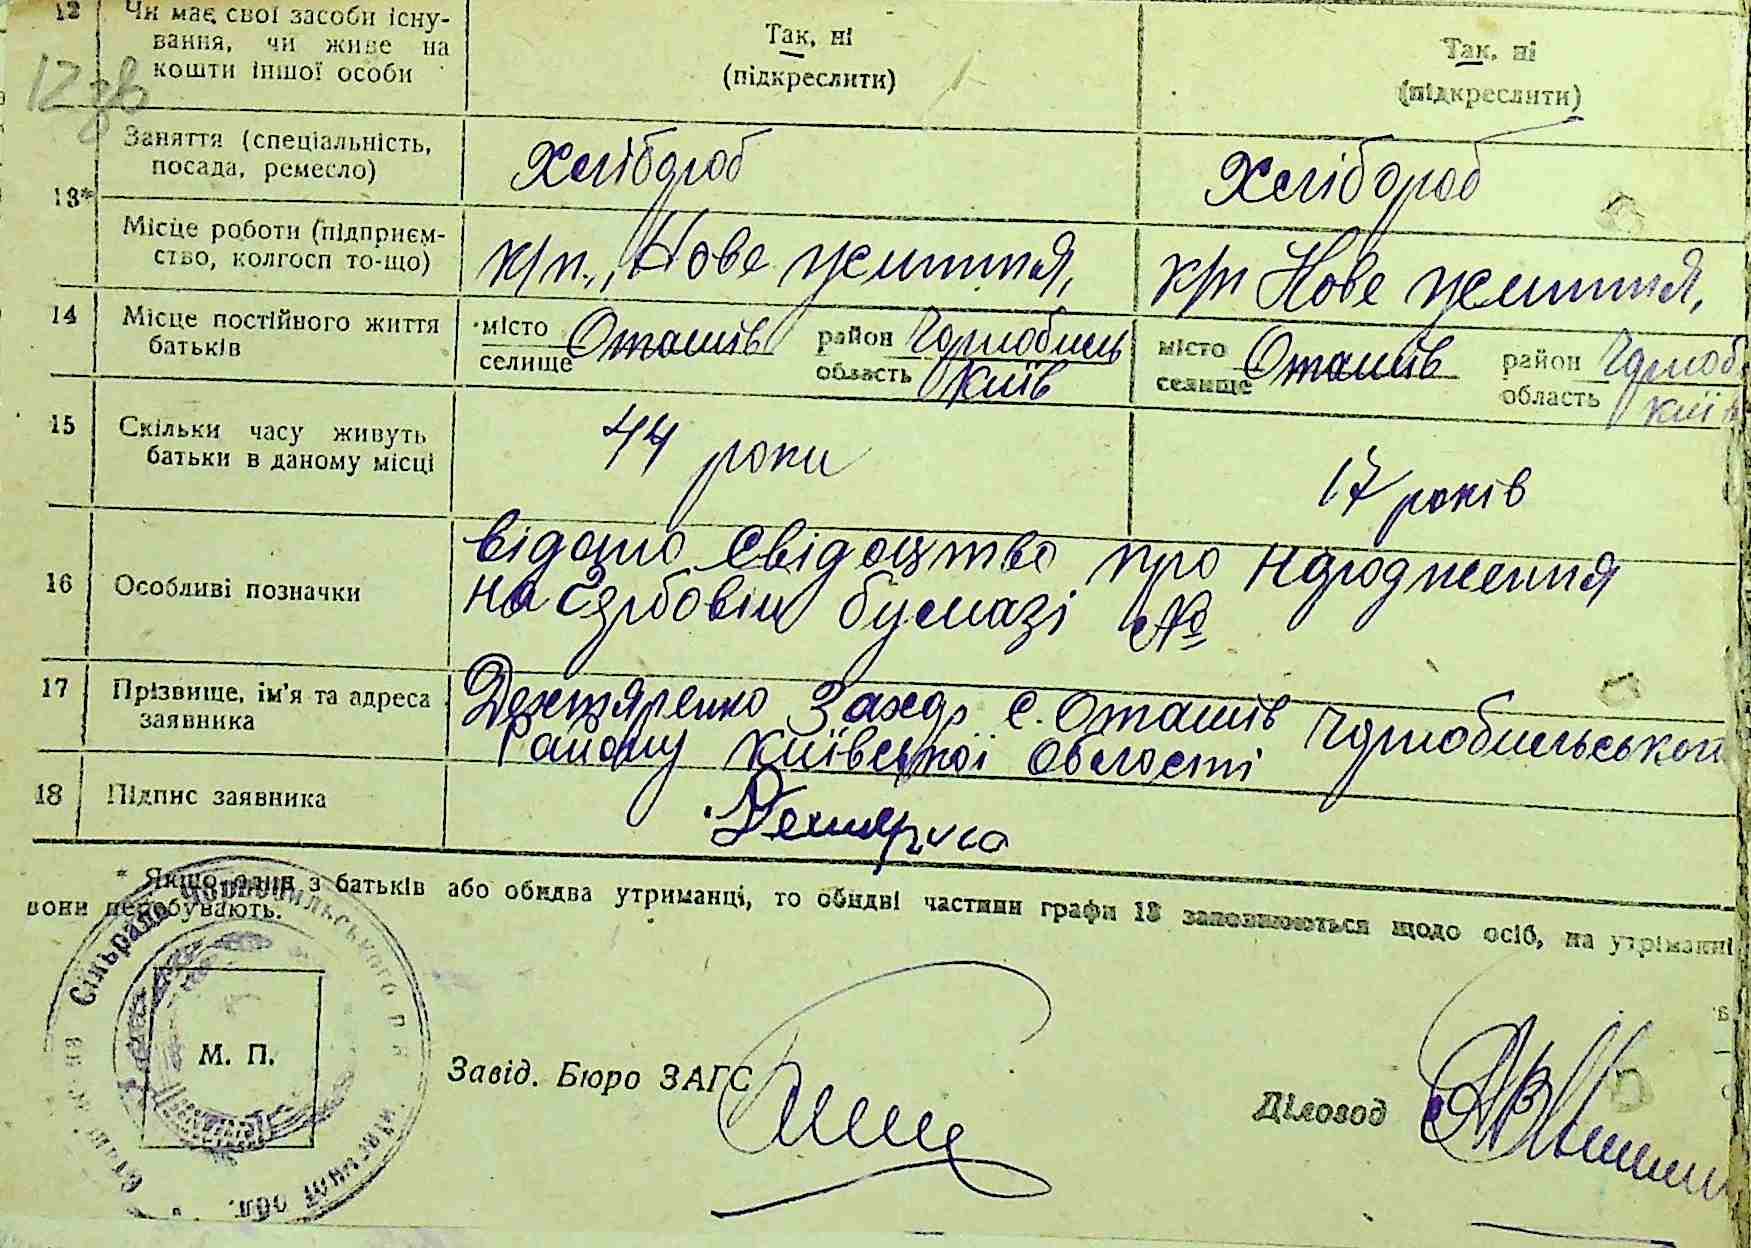 12 Чи має свої засоби існу-
вання, чи живе на
кошти іншої особи
Так, ні
(підкреслити)
Так, ні
(підкреслити)
12зв
13*
Заняття (спеціальність,
посада, ремесло)
Хлібороб
Хлібороб
Місце роботи (підприєм-
ство, колгосп то-що)
к/п., Нове життя,
к/п Нове життя,
14 Місце постійного життя
батьків
місто
селище Оташів
район Чорнобиль
область Київ
місто
селище Оташів
район Чорноб
область Київ
15 Скільки часу живуть
батьки в даному місці
44 роки
17 років
16 Особливі позначки
відано свідоцтво про народження
на гербовім бумазі №
17 Прізвище, ім'я та адреса
заявника
Дехтяренко Захар с. Оташів Чорнобильського
Району Київської Области
18 Підпис заявника
* Якщо один з батьків або обидва утриманці, то обидві частини графи 13 заповнюються щодо осіб, на утриманні
вони перебувають.
Сільрада Чорнобильського р
обл.
М. П.
Завід. Бюро ЗАГС
Діловод